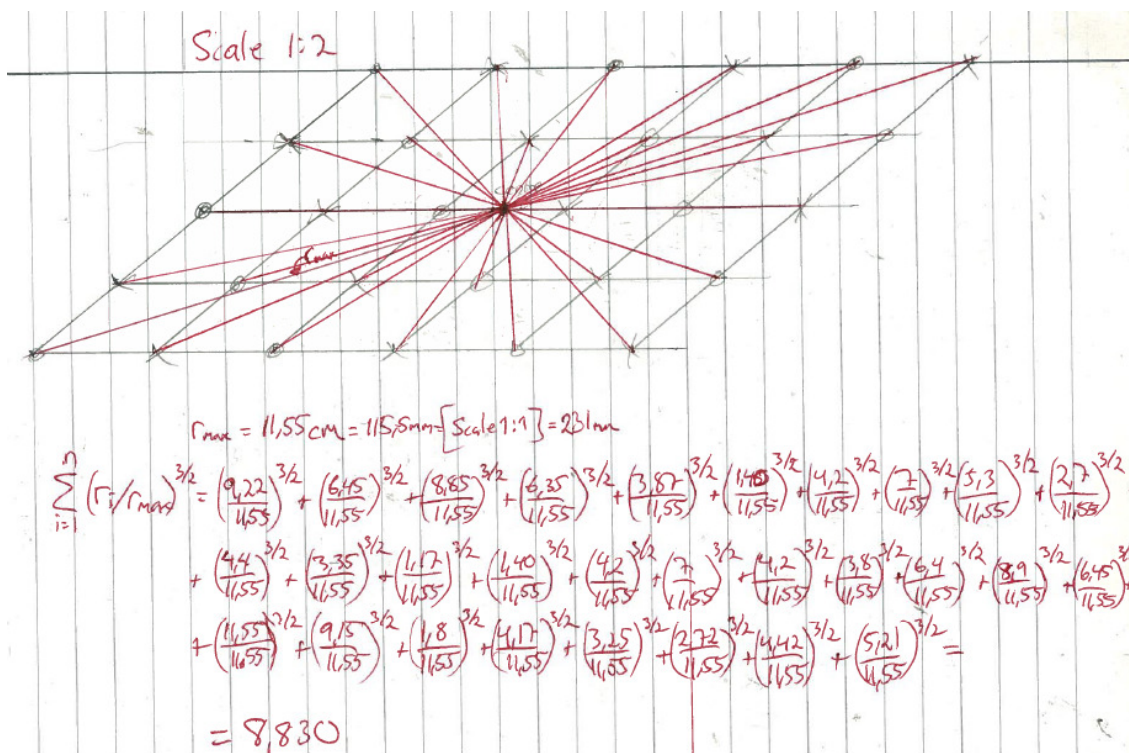 Scale 1:2
r_max
r_max = 11,55 cm = 115,5mm = [Scale 1:1] = 231mm
\sum_{i=1}^{n} (r_i/r_max)^{3/2} = (9,22/11,55)^{3/2} + (6,45/11,55)^{3/2} + (8,85/11,55)^{3/2} + (6,35/11,55)^{3/2} + (3,87/11,55)^{3/2} + (1,40/11,55)^{3/2} + (4,2/11,55)^{3/2} + (7/11,55)^{3/2} + (5,3/11,55)^{3/2} + (2,7/11,55)^{3/2}
+ (4,4/11,55)^{3/2} + (3,35/11,55)^{3/2} + (1,17/11,55)^{3/2} + (1,40/11,55)^{3/2} + (4,2/11,55)^{3/2} + (7/11,55)^{3/2} + (4,2/11,55)^{3/2} + (3,8/11,55)^{3/2} + (6,4/11,55)^{3/2} + (8,9/11,55)^{3/2} + (6,45/11,55)^{3/2} +
+ (11,55/11,55)^{3/2} + (9,15/11,55)^{3/2} + (1,8/11,55)^{3/2} + (4,17/11,55)^{3/2} + (3,25/11,55)^{3/2} + (2,72/11,55)^{3/2} + (4,42/11,55)^{3/2} + (5,21/11,55)^{3/2} =
= 8,830